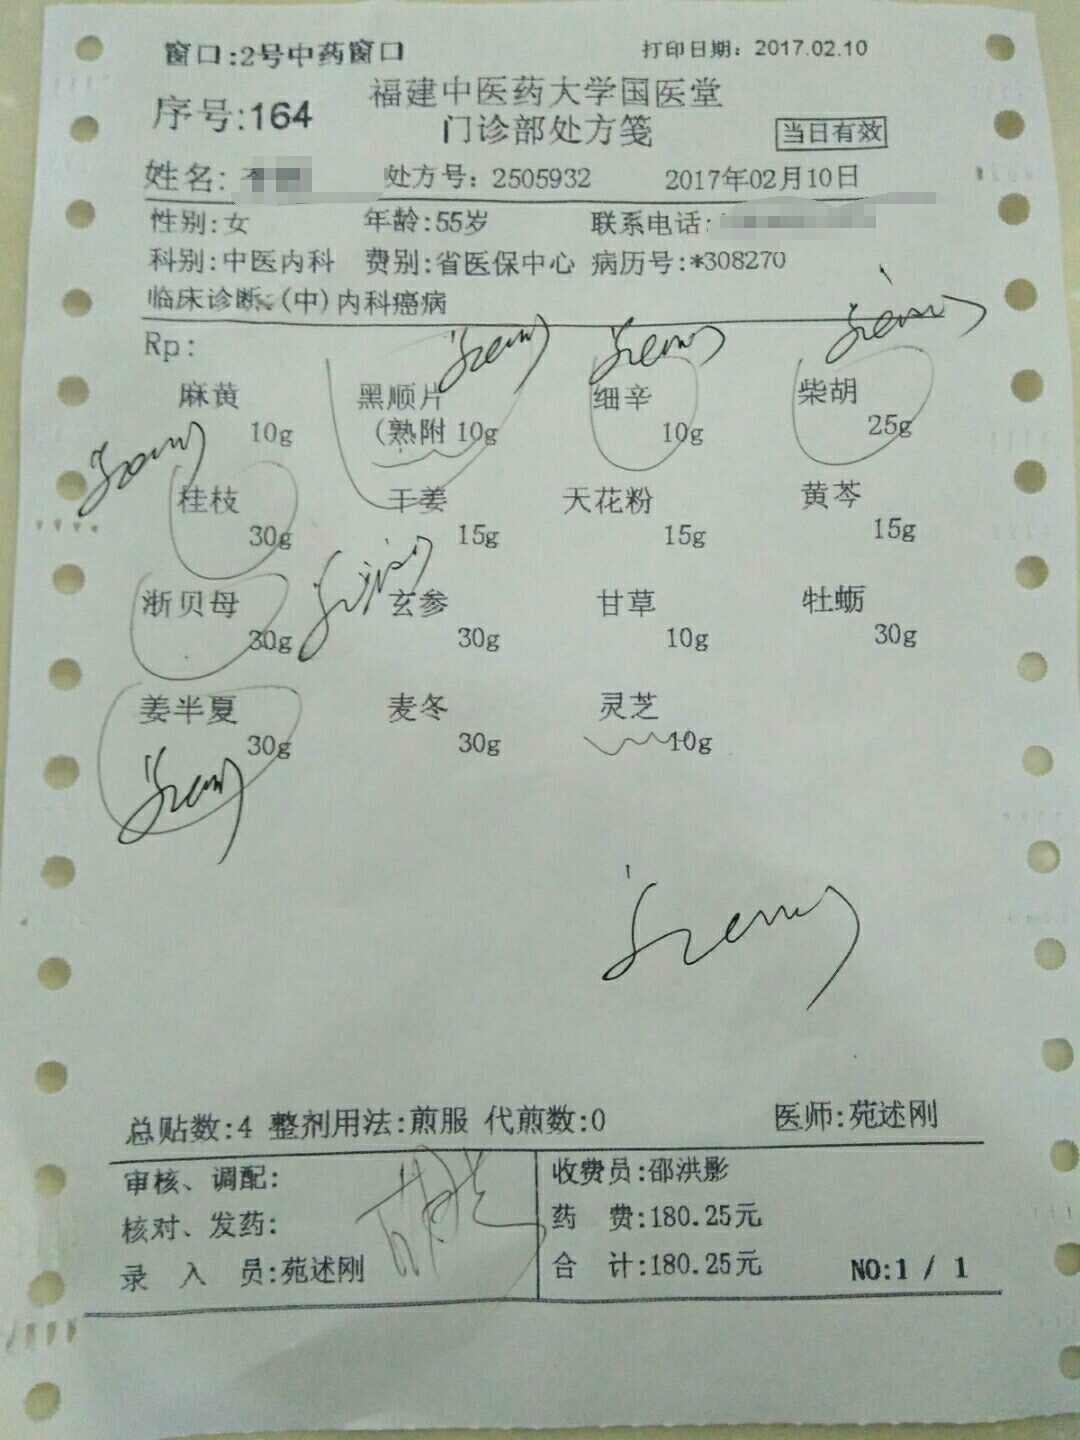 窗口:2号中药窗口 打印日期：2017.02.10
序号:164 福建中医药大学国医堂
门诊部处方笺 当日有效
姓名: 处方号：2505932 2017年02月10日
性别:女 年龄:55岁 联系电话:
科别:中医内科 费别:省医保中心 病历号:*308270
临床诊断:(中)内科癌病
Rp:
麻黄 黑顺片 细辛 柴胡
10g (熟附 10g 10g 25g
桂枝 干姜 天花粉 黄芩
30g 15g 15g 15g
浙贝母 玄参 甘草 牡蛎
30g 30g 10g 30g
姜半夏 麦冬 灵芝
30g 30g 10g
总贴数:4 整剂用法:煎服 代煎数:0 医师:苑述刚
审核、调配: 收费员:邵洪影
核对、发药: 药 费:180.25元
录 入 员:苑述刚 合 计:180.25元 NO:1 / 1